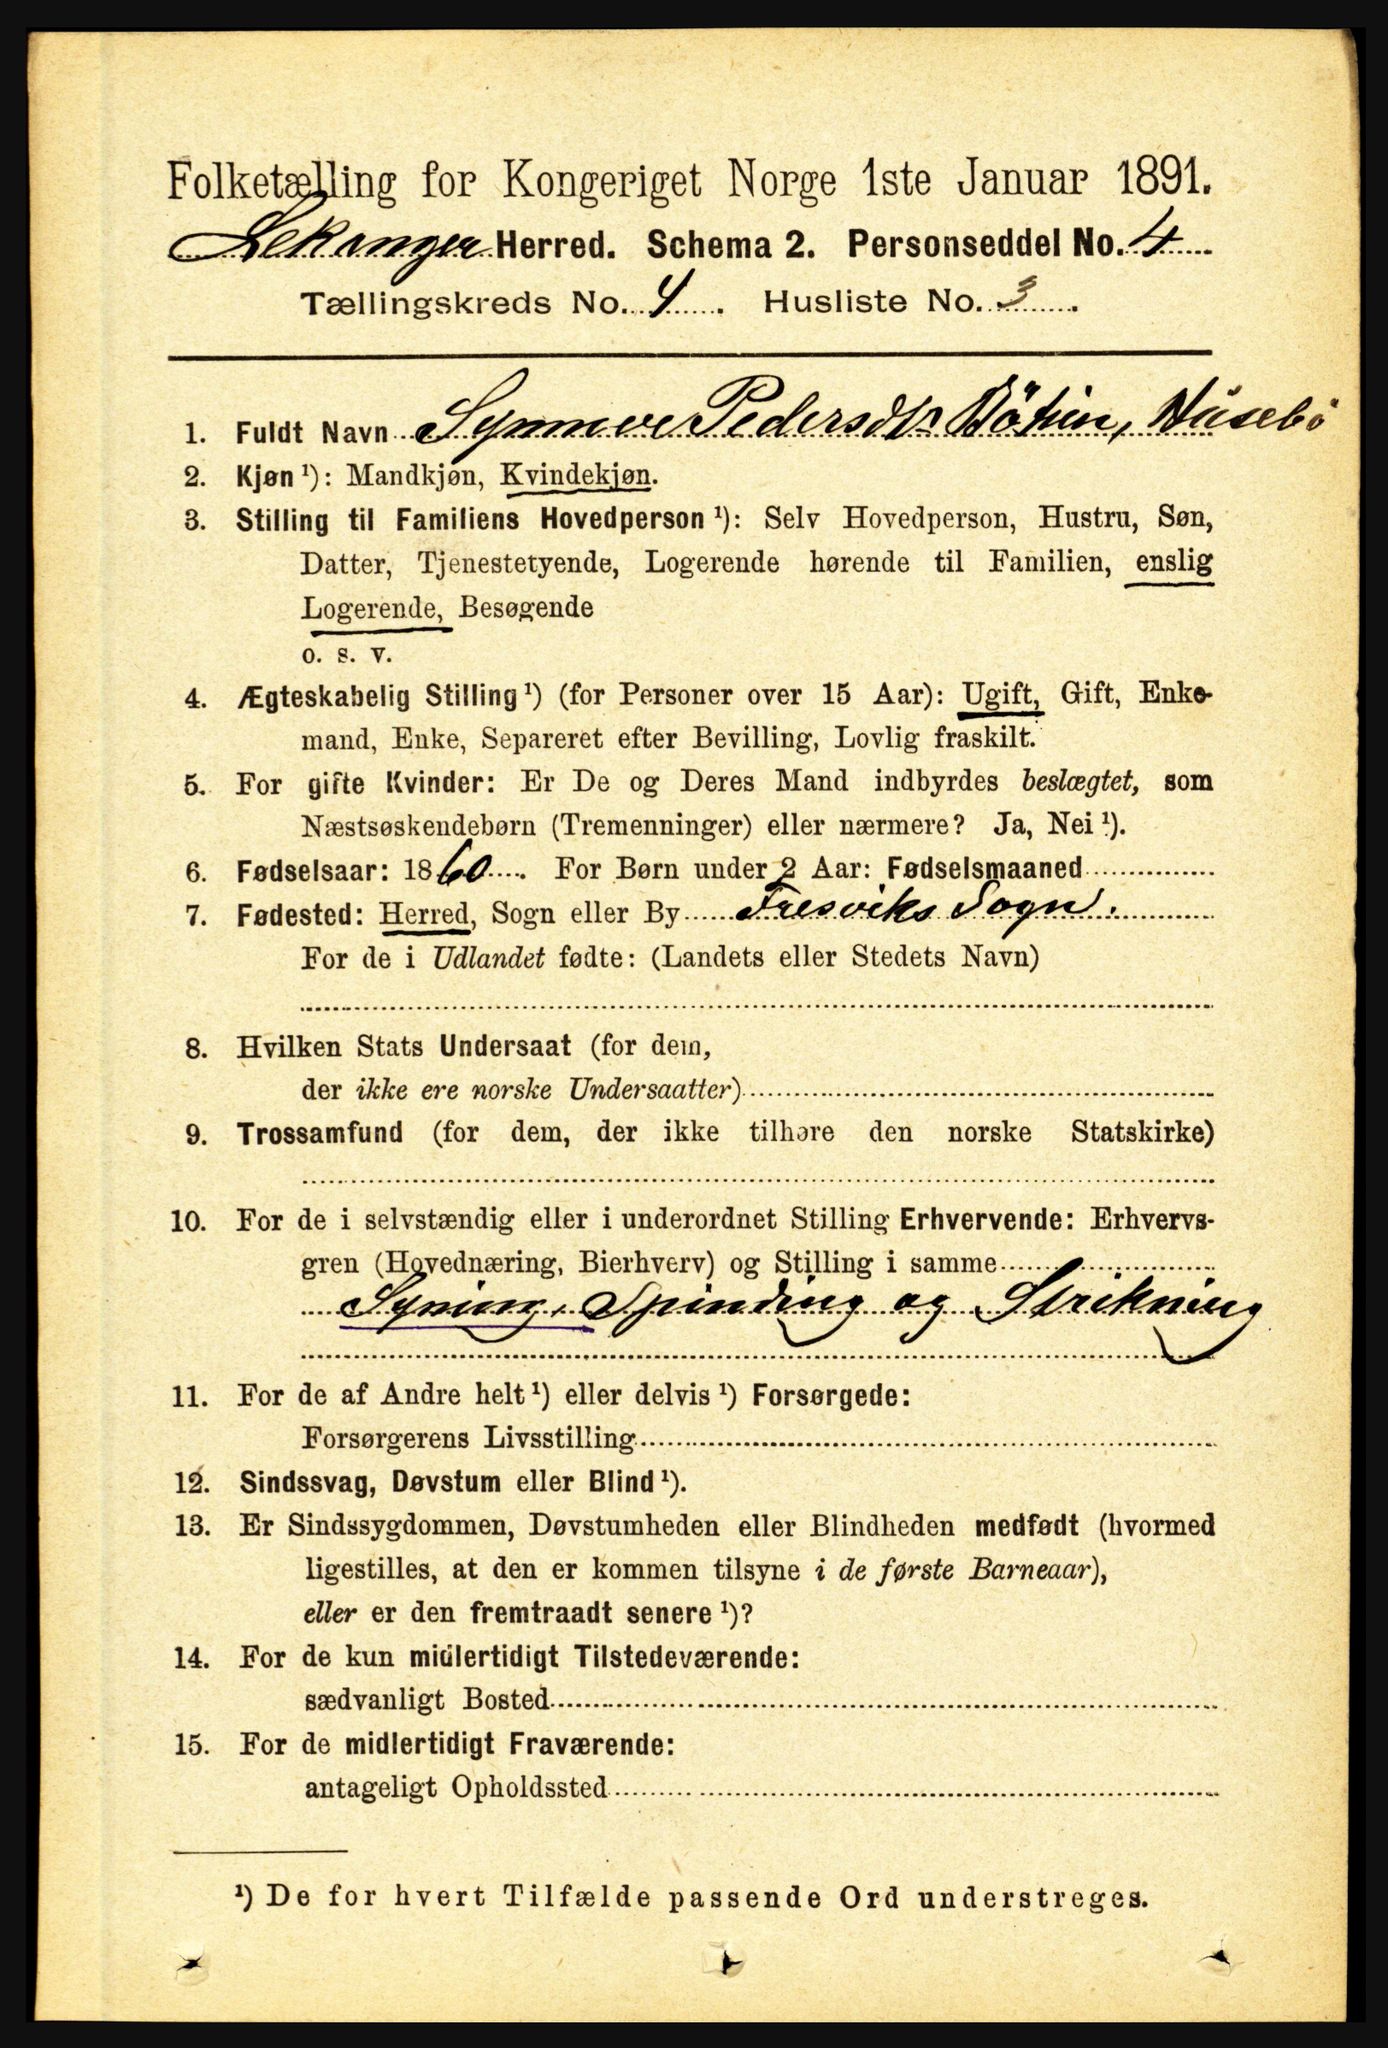 Folketælling for Kongeriget Norge 1ste Januar 1891.
Lekanger Herred. Schema 2. Personseddel No. 4
Tællingskreds No. 4. Husliste No. 3.
1. Fuldt Navn Synneve Pedersdtr Bøtun, Husebö
2. Kjøn ¹): Mandkjøn, Kvindekjøn.
3. Stilling til Familiens Hovedperson ¹): Selv Hovedperson, Hustru, Søn,
Datter, Tjenestetyende, Logerende hørende til Familien, enslig
Logerende, Besøgende
o. s. v.
4. Ægteskabelig Stilling ¹) (for Personer over 15 Aar): Ugift, Gift, Enke-
mand, Enke, Separeret efter Bevilling, Lovlig fraskilt.
5. For gifte Kvinder: Er De og Deres Mand indbyrdes beslægtet, som
Næstsøskendebørn (Tremenninger) eller nærmere? Ja, Nei ¹).
6. Fødselsaar: 1860. For Børn under 2 Aar: Fødselsmaaned
7. Fødested: Herred, Sogn eller By Fresviks Sogn.
For de i Udlandet fødte: (Landets eller Stedets Navn)
8. Hvilken Stats Undersaat (for dem,
der ikke ere norske Undersaatter)
9. Trossamfund (for dem, der ikke tilhøre den norske Statskirke)
10. For de i selvstændig eller i underordnet Stilling Erhvervende: Erhvervs-
gren (Hovednæring, Bierhverv) og Stilling i samme
Syning, Spinding og Strikning
11. For de af Andre helt ¹) eller delvis ¹) Forsørgede:
Forsørgerens Livsstilling
12. Sindssvag, Døvstum eller Blind ¹).
13. Er Sindssygdommen, Døvstumheden eller Blindheden medfødt (hvormed
ligestilles, at den er kommen tilsyne i de første Barneaar),
eller er den fremtraadt senere ¹)?
14. For de kun midlertidigt Tilstedeværende:
sædvanligt Bosted
15. For de midlertidigt Fraværende:
antageligt Opholdssted
¹) De for hvert Tilfælde passende Ord understreges.